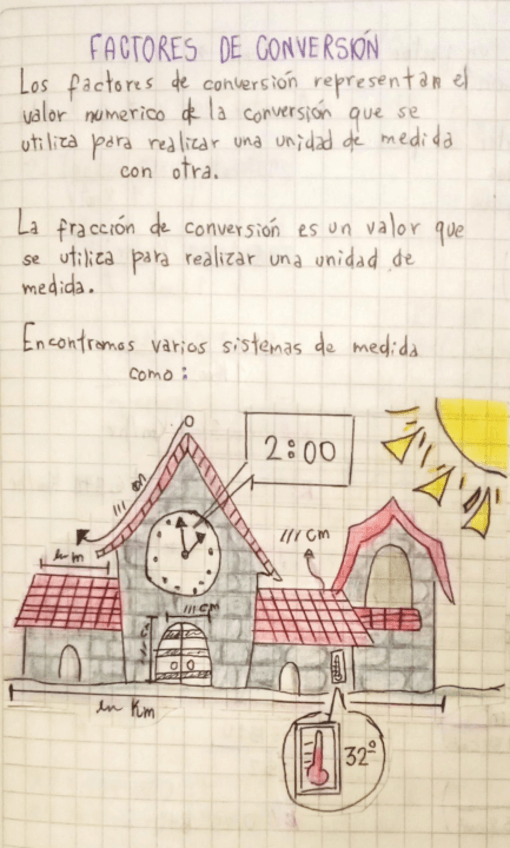 FACTORES DE CONVERSIÓN
Los factores de conversión representan el
valor numerico de la conversión que se
utiliza para realizar una unidad de medida
con otra.
La fracción de conversión es un valor que
se utiliza para realizar una unidad de
medida.
Encontramos varios sistemas de medida
como:
2:00
cm
m
cm
en Km
32°